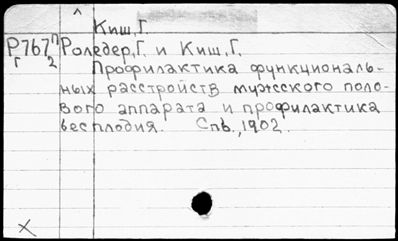 Киш, Г.
Р767 п Роледер, Г. и Киш, Г.
г 2 Профилактика функциональ-
ных расстройств мужского поло-
вого аппарата и профилактика
бесплодия. Спб., 1902.